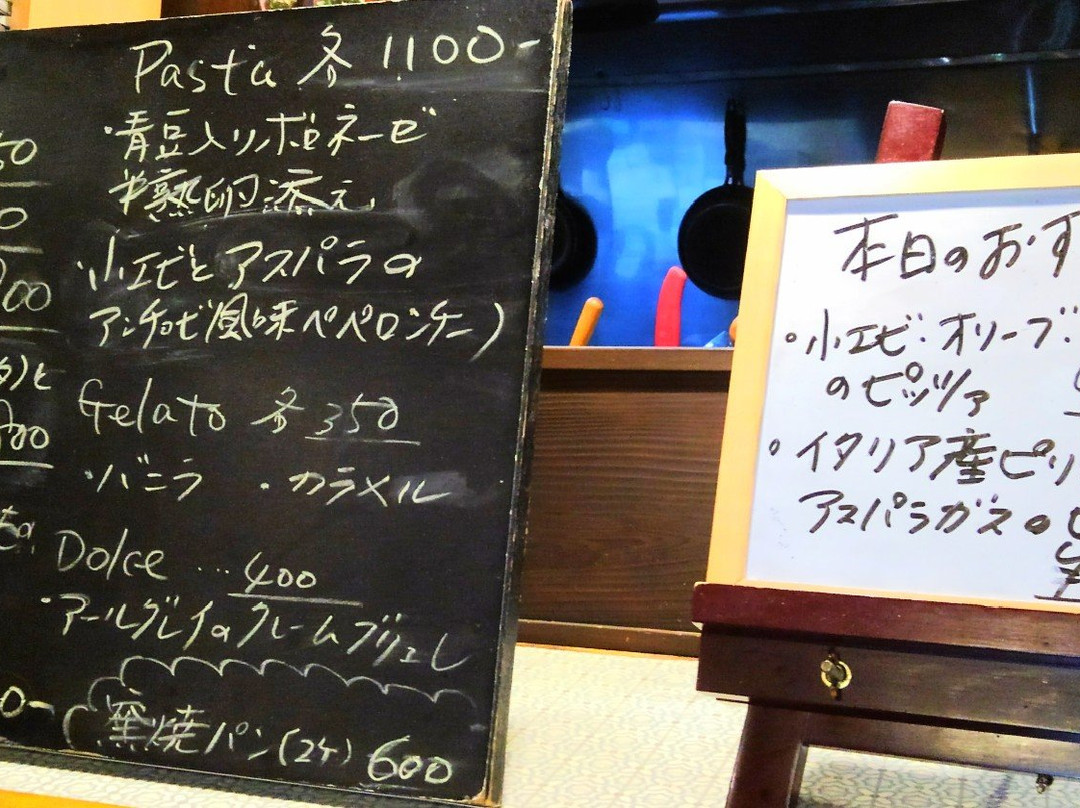 Pasta 各 1100-
・青豆入りボロネーゼ
半熟卵添え
・小エビとアスパラの
アンチョビ風味ペペロンチーノ
Gelato 各 350
・バニラ ・カラメル
Dolce … 400
・アールグレイのクレームブリュレ
窯焼パン(2ケ) 600
50
0
00
と
00
0-
本日のおす
・小エビ・オリーブ
のピッツァ
・イタリア産ピリ
アスパラガスの